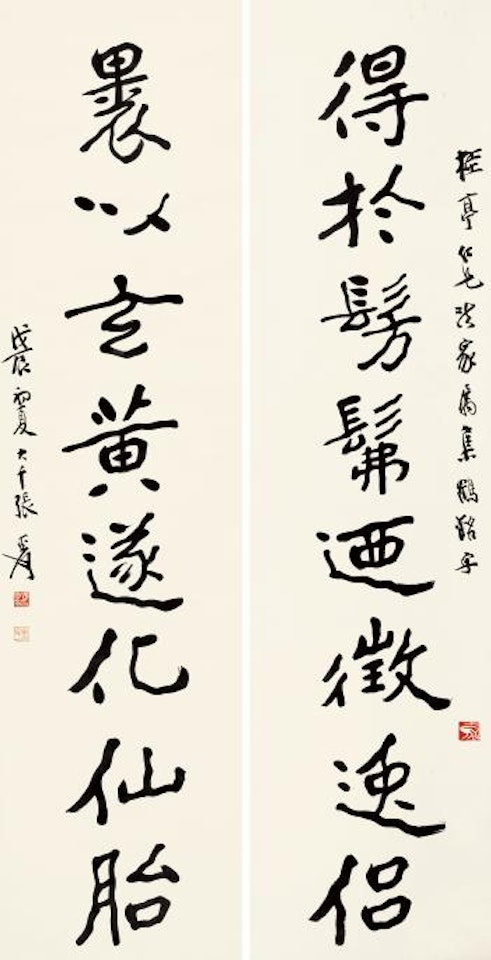 亭仁兄法家屬集鶴銘字
得於髣髴迺徵逸侣
裹以玄黄遂化仙胎
戊辰初夏大千張爰